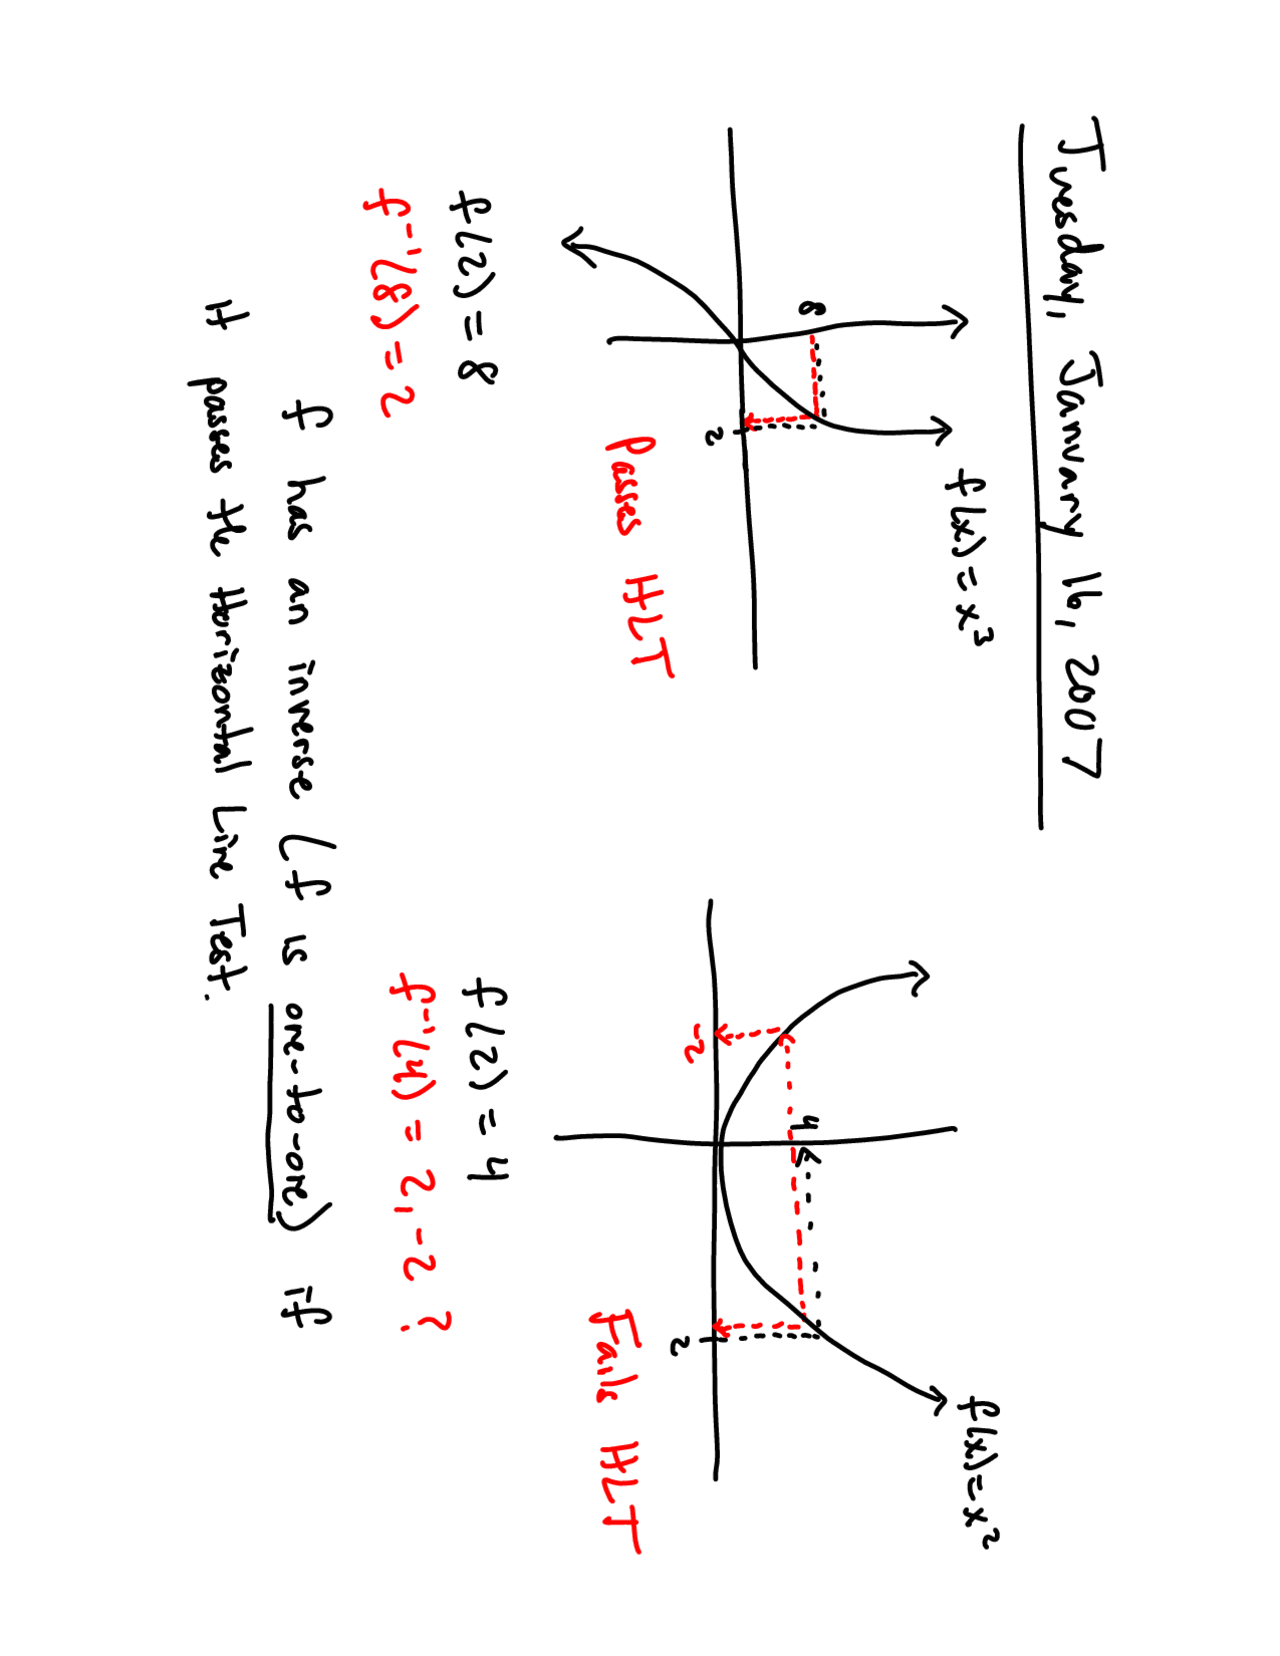 Tuesday, January 16, 2007
f(x)=x³
8
2
Passes HLT
f(2)=8
f⁻¹(8)=2
f(x)=x²
4
-2
2
Fails HLT
f(2)=4
f⁻¹(4)=2,-2?
f has an inverse (f is one-to-one) if
it passes the Horizontal Line Test.